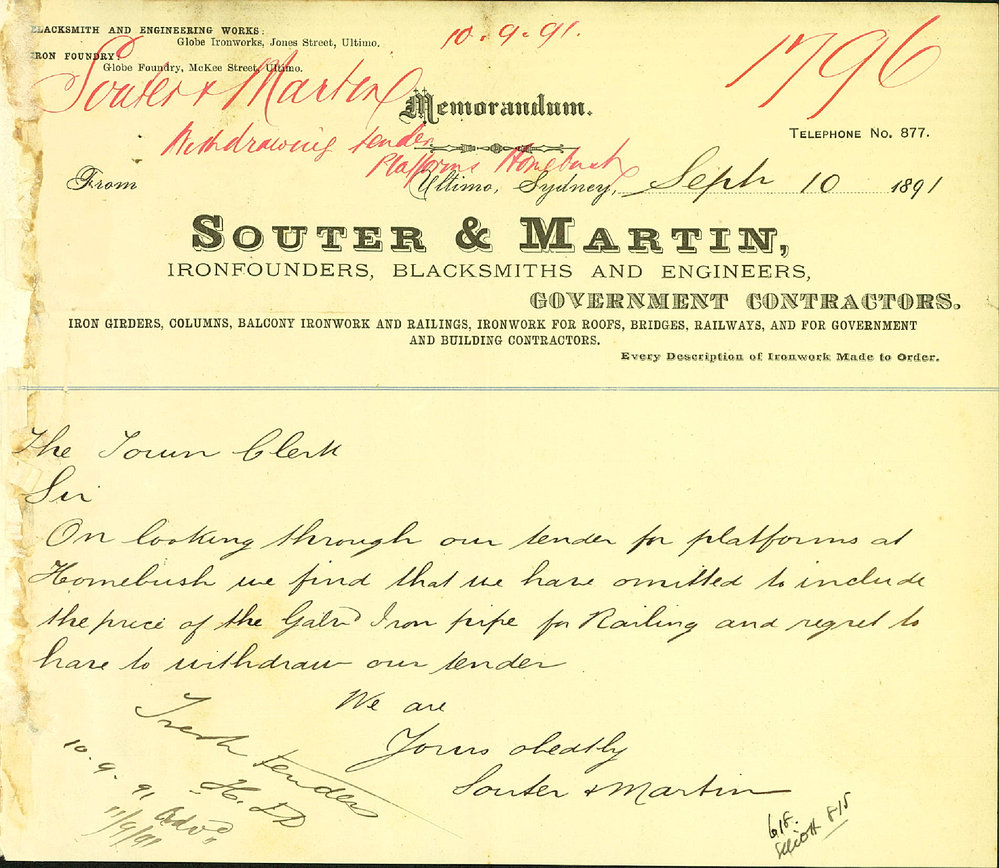 BLACKSMITH AND ENGINEERING WORKS:
Globe Ironworks, Jones Street, Ultimo.
IRON FOUNDRY:
Globe Foundry, McKee Street, Ultimo.
10.9.91.
1796
Souter & Martin
Memorandum.
TELEPHONE NO. 877.
Withdrawing tender
Platforms Homebush
From
Ultimo, Sydney, Sept 10 1891
SOUTER & MARTIN,
IRONFOUNDERS, BLACKSMITHS AND ENGINEERS,
GOVERNMENT CONTRACTORS.
IRON GIRDERS, COLUMNS, BALCONY IRONWORK AND RAILINGS, IRONWORK FOR ROOFS, BRIDGES, RAILWAYS, AND FOR GOVERNMENT
AND BUILDING CONTRACTORS.
Every Description of Ironwork Made to Order.
The Town Clerk
Sir
On looking through our tender for platforms at
Homebush we find that we have omitted to include
the price of the Galvd Iron pipe for Railing and regret to
have to withdraw our tender
We are
Yours obedtly
Souter & Martin
Fresh tenders
10.9.91
Advd
11/9/91
618.
Elliott 815